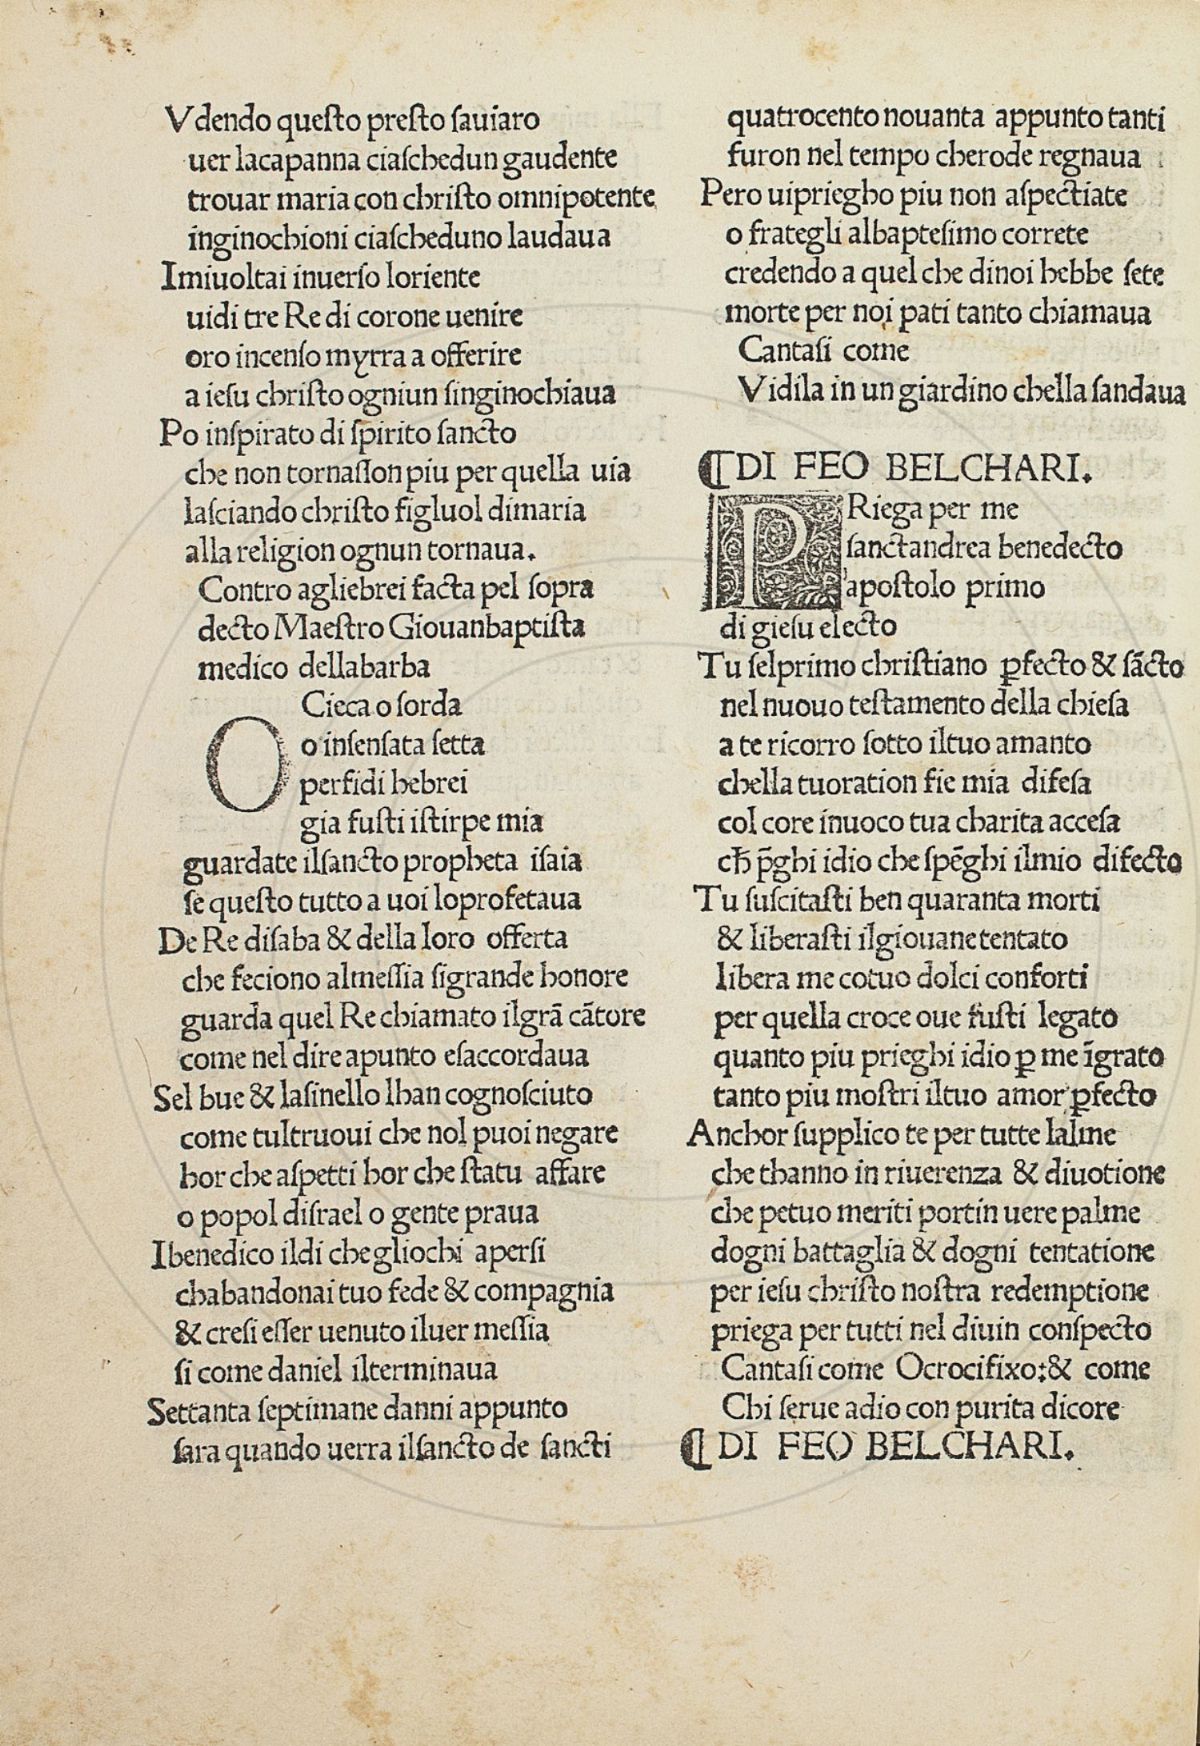 Vdendo questo presto sauiaro
uer lacapanna ciaschedun gaudente
trouar maria con christo omnipotente
inginochioni ciascheduno laudaua
Imiuoltai inuerso loriente
uidi tre Re di corone uenire
oro incenso myrra a offerire
a iesu christo ogniun singinochiaua
Po inspirato di spirito sancto
che non tornasson piu per quella uia
lasciando christo figluol dimaria
alla religion ognun tornaua.
Contro agliebrei facta pel sopra
decto Maestro Giouanbaptista
medico dellabarba
O Cieca o sorda
o insensata setta
perfidi hebrei
gia fusti istirpe mia
guardate ilsancto propheta isaia
se questo tutto a uoi loprofetaua
De Re disaba & della loro offerta
che feciono almessia sigrande honore
guarda quel Re chiamato ilgrā cātore
come nel dire apunto esaccordaua
Sel bue & lasinello lhan cognosciuto
come tultruoui che nol puoi negare
hor che aspetti hor che statu affare
o popol disrael o gente praua
Ibenedico ildi chegliochi apersi
chabandonai tuo fede & compagnia
& cresi esser uenuto iluer messia
si come daniel ilterminaua
Settanta septimane danni appunto
sara quando uerra ilsancto de sancti
quatrocento nouanta appunto tanti
furon nel tempo cherode regnaua
Pero uipriegho piu non aspectiate
o frategli albaptesimo correte
credendo a quel che dinoi hebbe sete
morte per noi pati tanto chiamaua
Cantasi come
Vidila in un giardino chella sandaua
⁋DI FEO BELCHARI.
PRiega per me
sanctandrea benedecto
apostolo primo
di giesu electo
Tu selprimo christiano ꝑfecto & sācto
nel nuouo testamento della chiesa
a te ricorro sotto iltuo amanto
chella tuoration fie mia difesa
col core inuoco tua charita accesa
cħ p̄ghi idio che spēghi ilmio difecto
Tu suscitasti ben quaranta morti
& liberasti ilgiouane tentato
libera me cotuo dolci conforti
per quella croce oue fusti legato
quanto piu prieghi idio ꝑ me īgrato
tanto piu mostri iltuo amor ꝑfecto
Anchor supplico te per tutte lalme
che thanno in riuerenza & diuotione
che petuo meriti portin uere palme
dogni battaglia & dogni tentatione
per iesu christo nostra redemptione
priega per tutti nel diuin conspecto
Cantasi come Ocrocifixo:& come
Chi serue adio con purita dicore
⁋DI FEO BELCHARI.